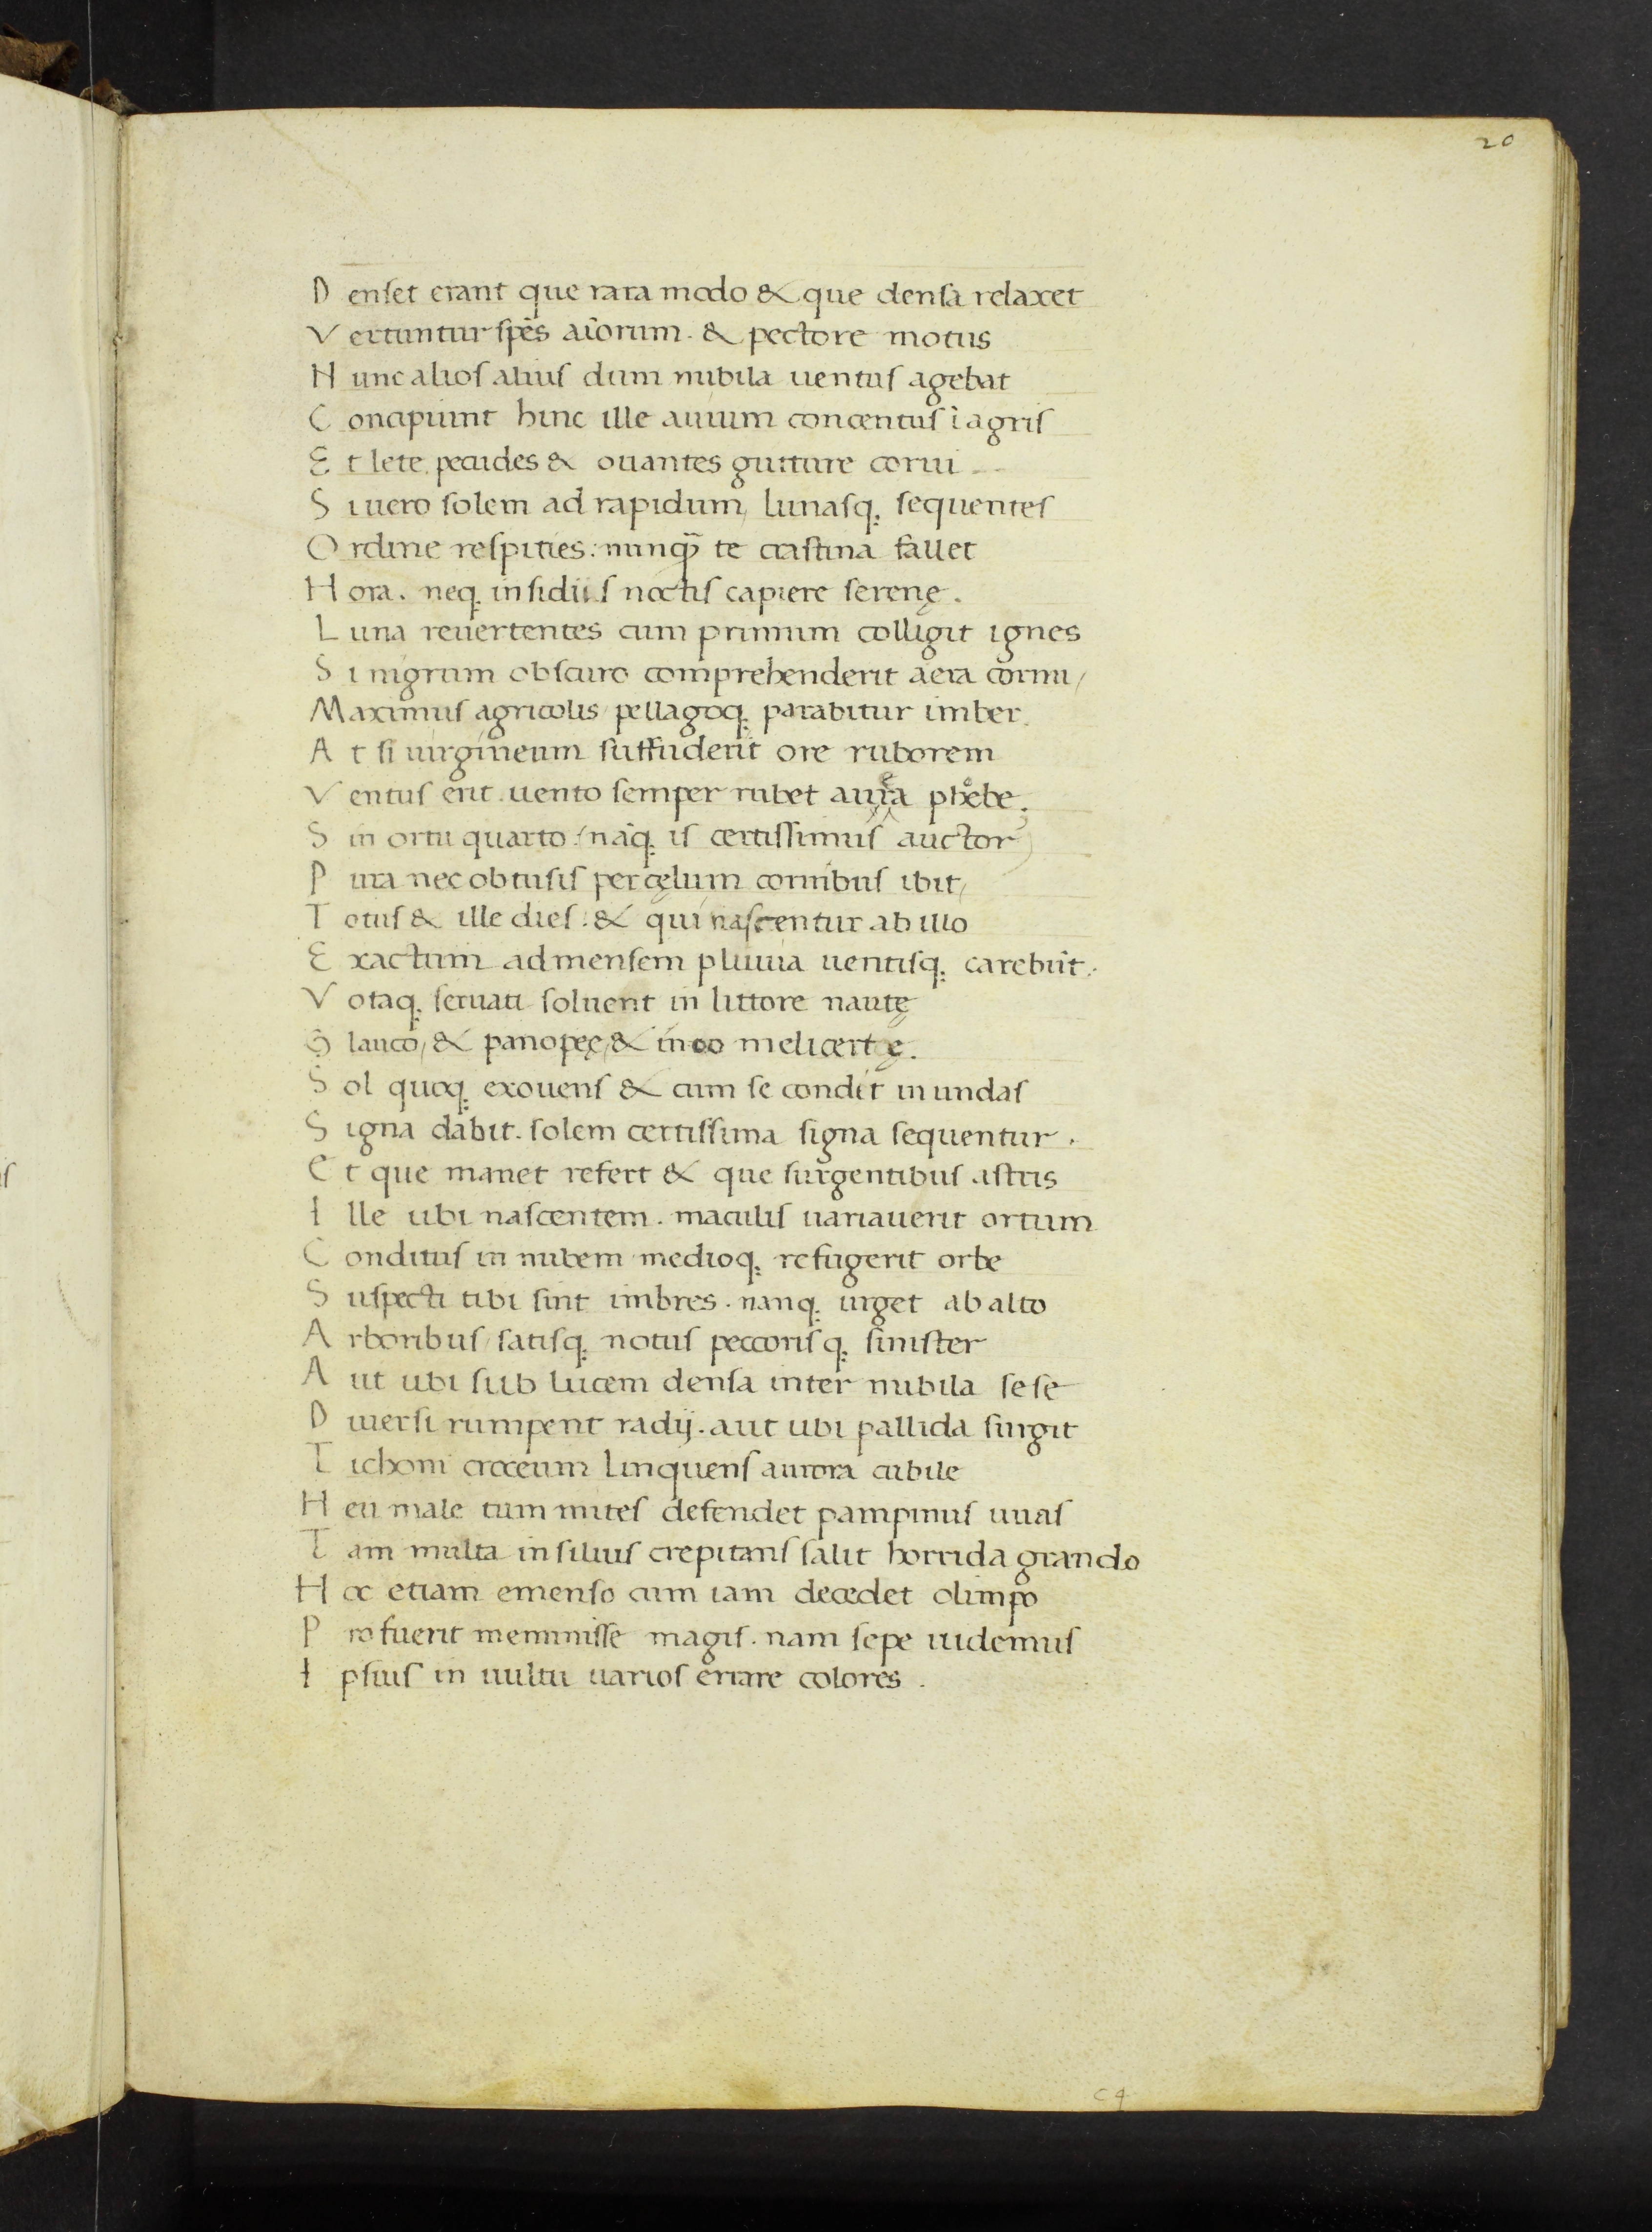 20
D enset erant que rara modo & que densa relaxet
V ertuntur spēs aīorum. & pectore motus
N unc alios alius dum nubila uentus agebat
C oncipiunt hinc ille auium concentus ī agris
E t lete pecudes & ouantes gutture corui
S i uero solem ad rapidum, lunasq; sequentes
O rdine respities: nunq̄ te crastina fallet
H ora. neq; insidiis noctis capiere serenę.
L una reuertentes cum primum colligit ignes
S i nigrum obscuro comprehenderit aera cornu,
Maximus agricolis pellagoq; parabitur imber.
A t si uirgineum suffuderit ore ruborem
V entus erit. uento semper rubet aurea phoebe.
S in ortu quarto (nāq; is certissimus auctor)
P ura nec obtusis per cęlum cornibus ibit,
T otus & ille dies: & qui nascentur ab illo
E xactum ad mensem pluuia uentisq; carebūt.
V otaq; seruati soluent in littore nautę
G lauco, & panopeę, & inoo melicertę.
S ol quoq; exouens & cum se condet in undas
S igna dabit. solem certissima signa sequentur.
E t que manet refert & que surgentibus astris
I lle ubi nascentem. maculis uariauerit ortum
C onditus in nubem medioq; refugerit orbe
S uspecti tibi sint imbres. nanq; urget ab alto
A rboribus, satisq; notus peccorisq; sinister
A ut ubi sub lucem densa inter nubila sese
D iuersi rumpent radij. aut ubi pallida surgit
T ichoni croceum linquens aurora cubile
H eu male tum mites defendet pampinus uuas
T am multa in siluis crepitans salit horrida grando
H oc etiam emenso cum iam decedet olimpo
P rofuerit meminisse magis. nam sepe uidemus
I psius in uultu uarios errare colores.
c 4